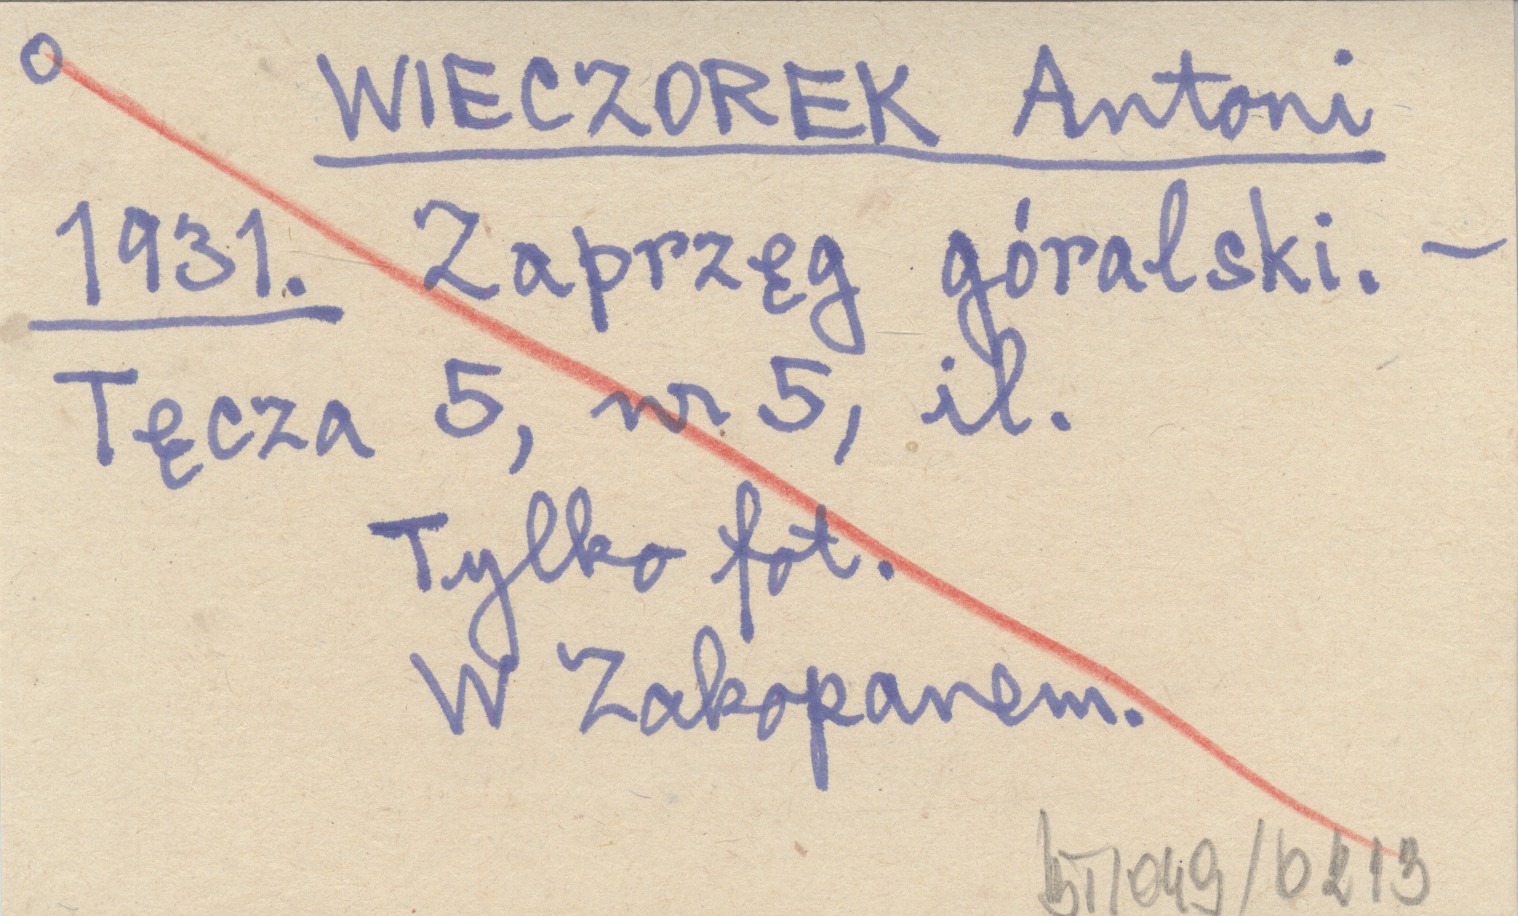 O WIECZOREK Antoni
1931. Zaprzęg góralski. –
Tęcza 5, nr 5, il.
Tylko fot.
W Zakopanem.